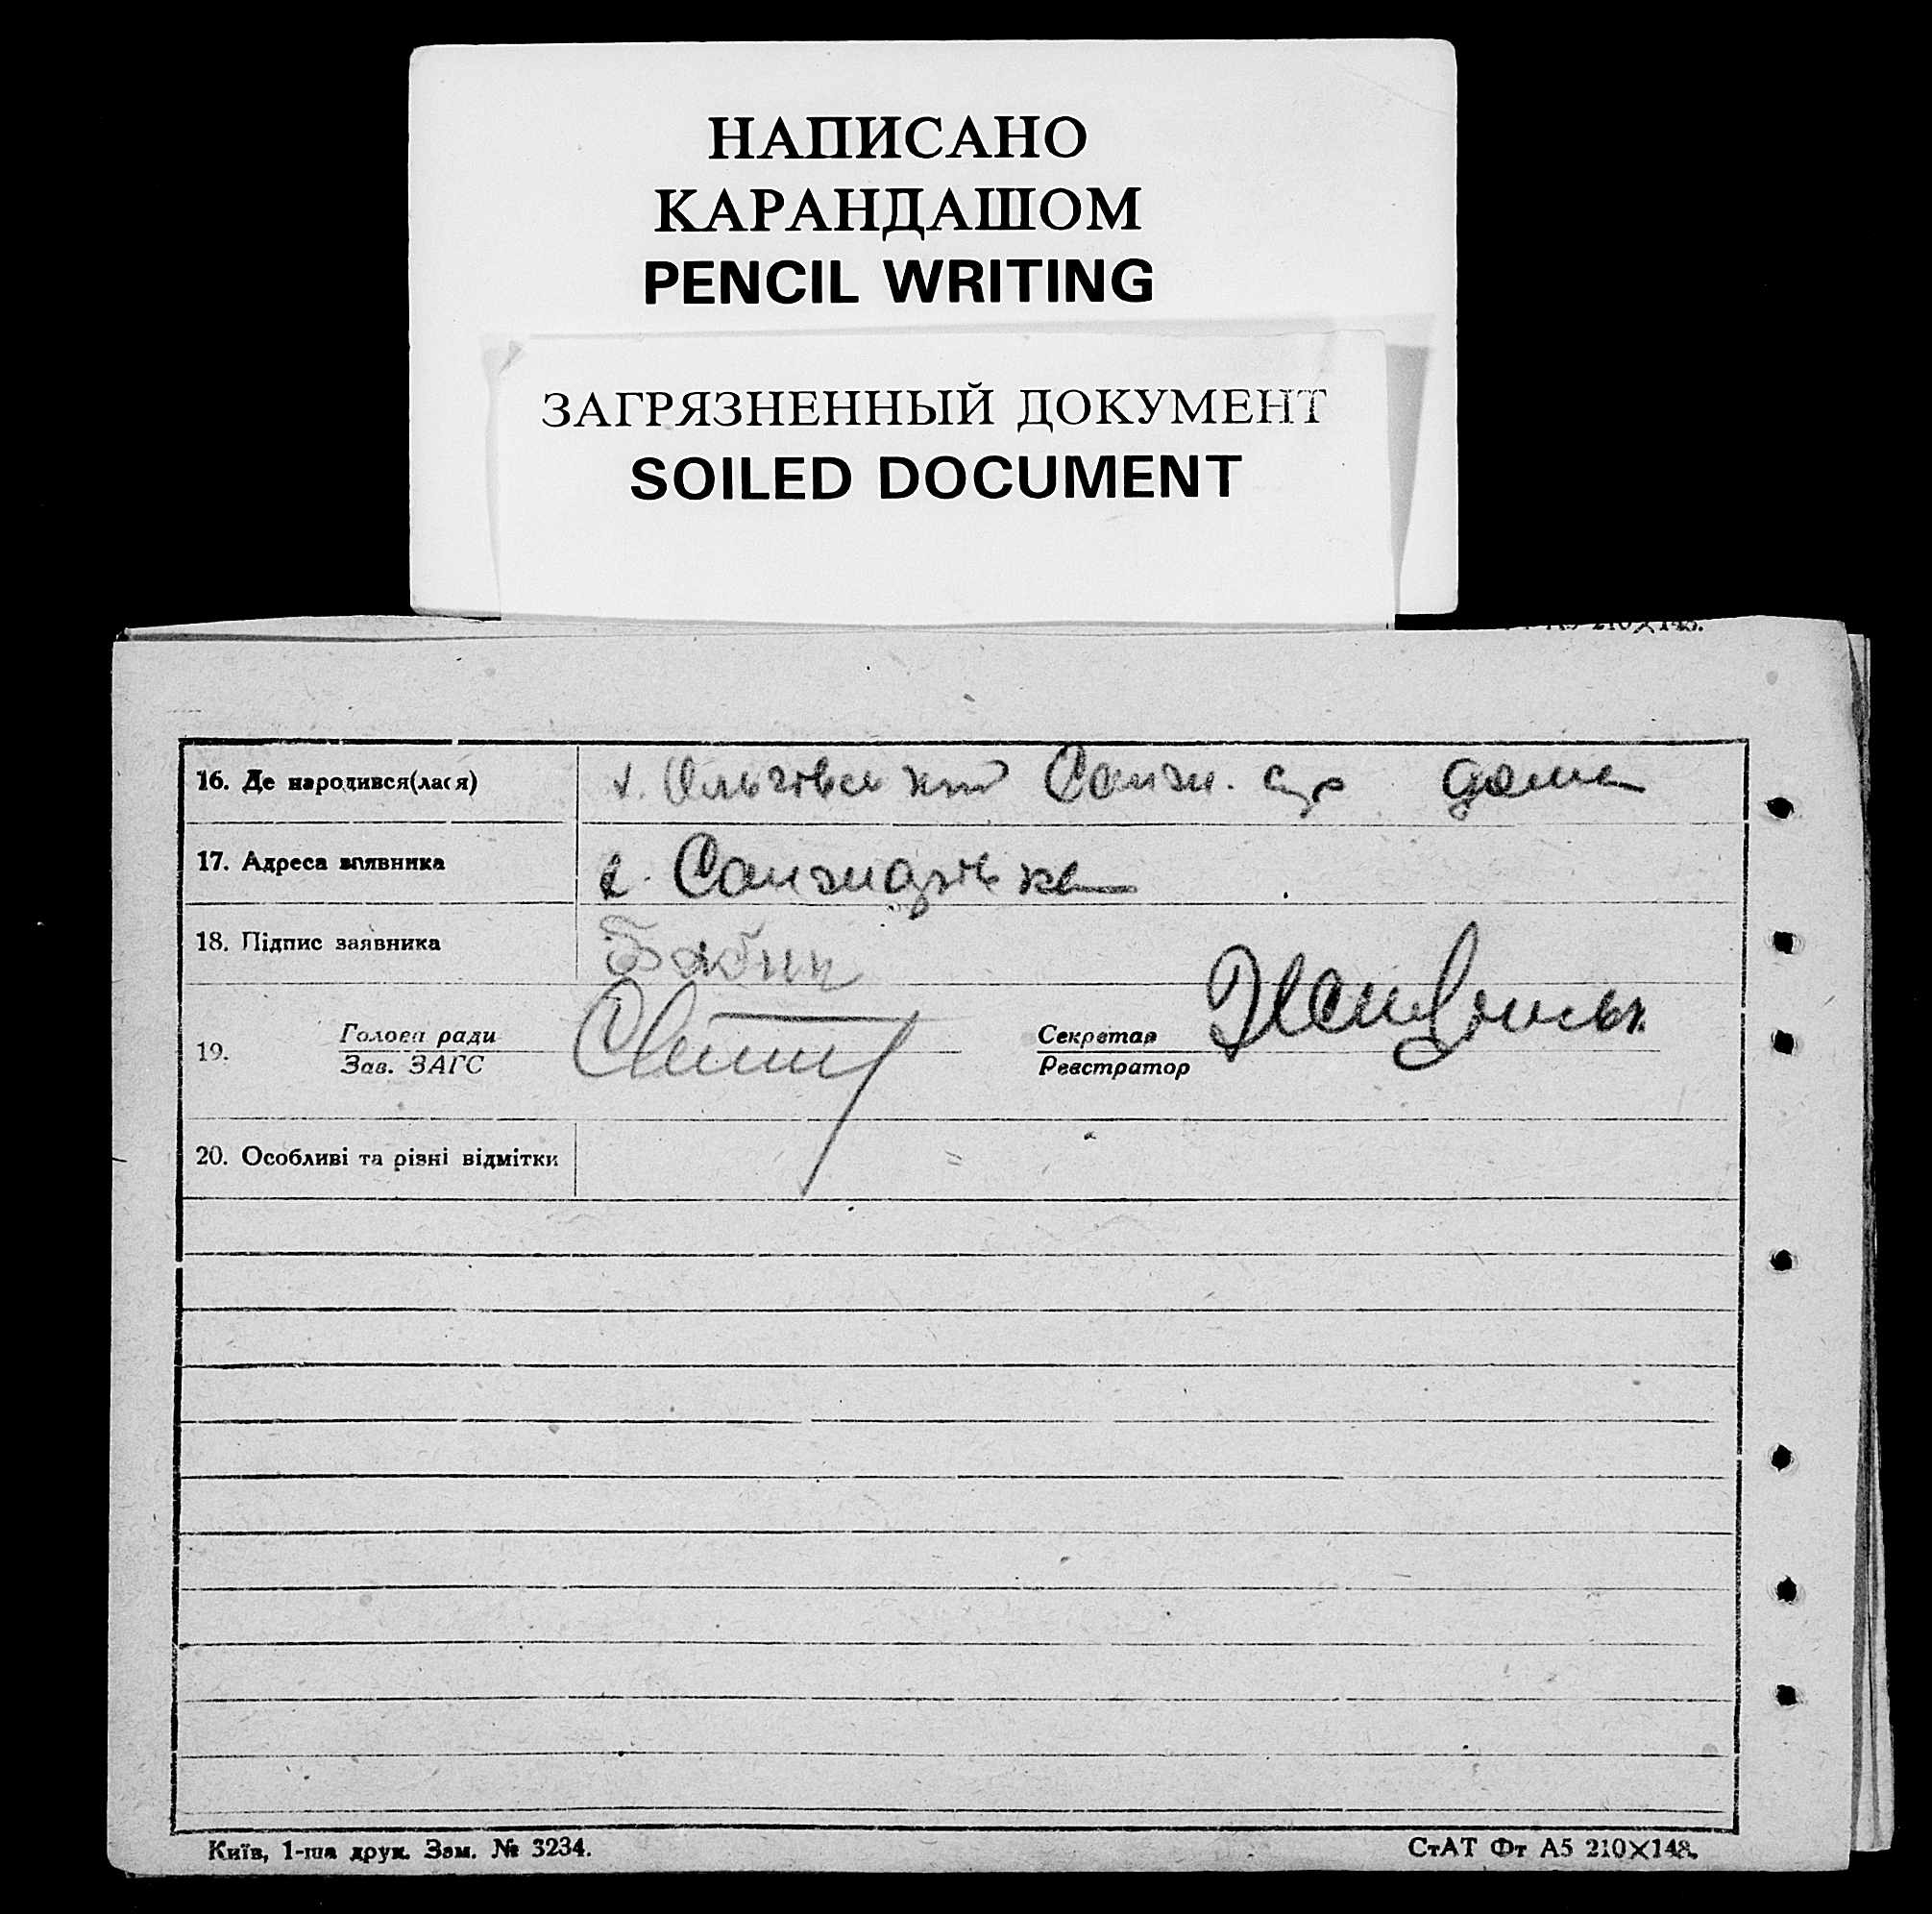 НАПИСАНО
КАРАНДАШОМ
PENCIL WRITING
ЗАГРЯЗНЕННЫЙ ДОКУМЕНТ
SOILED DOCUMENT
А5 210×148.
16. Де народився(лася) дома
17. Адреса заявника
18. Підпис заявника
19. Голова ради Секретар
Зав. ЗАГС Реєстратор
20. Особливі та різні відмітки
Київ, 1-ша друк. Зам. № 3234. СтАТ Фт А5 210×148.